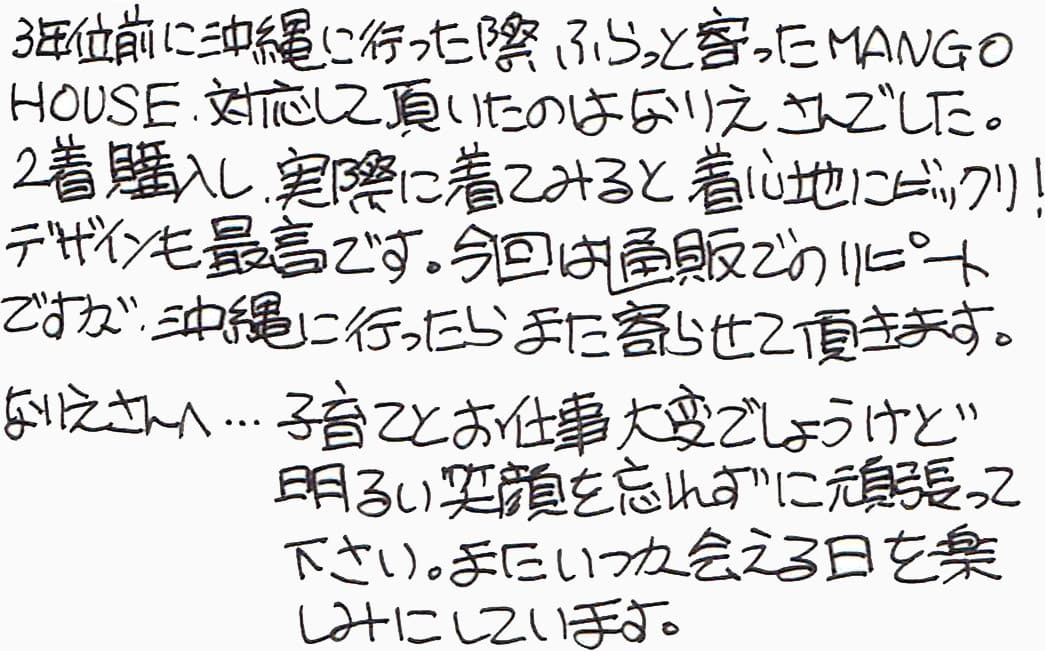 3年位前に沖縄に行った際、ふらっと寄ったMANGO
HOUSE、対応して頂いたのはなりえさんでした。
2着購入し、実際に着てみると着心地にビックリ!
デザインも最高です。今回は通販でのリピート
ですが、沖縄に行ったらまた寄らせて頂きます。
なりえさんへ…子育てとお仕事大変でしょうけど
明るい笑顔を忘れずに頑張って
下さい。またいつか会える日を楽
しみにしています。